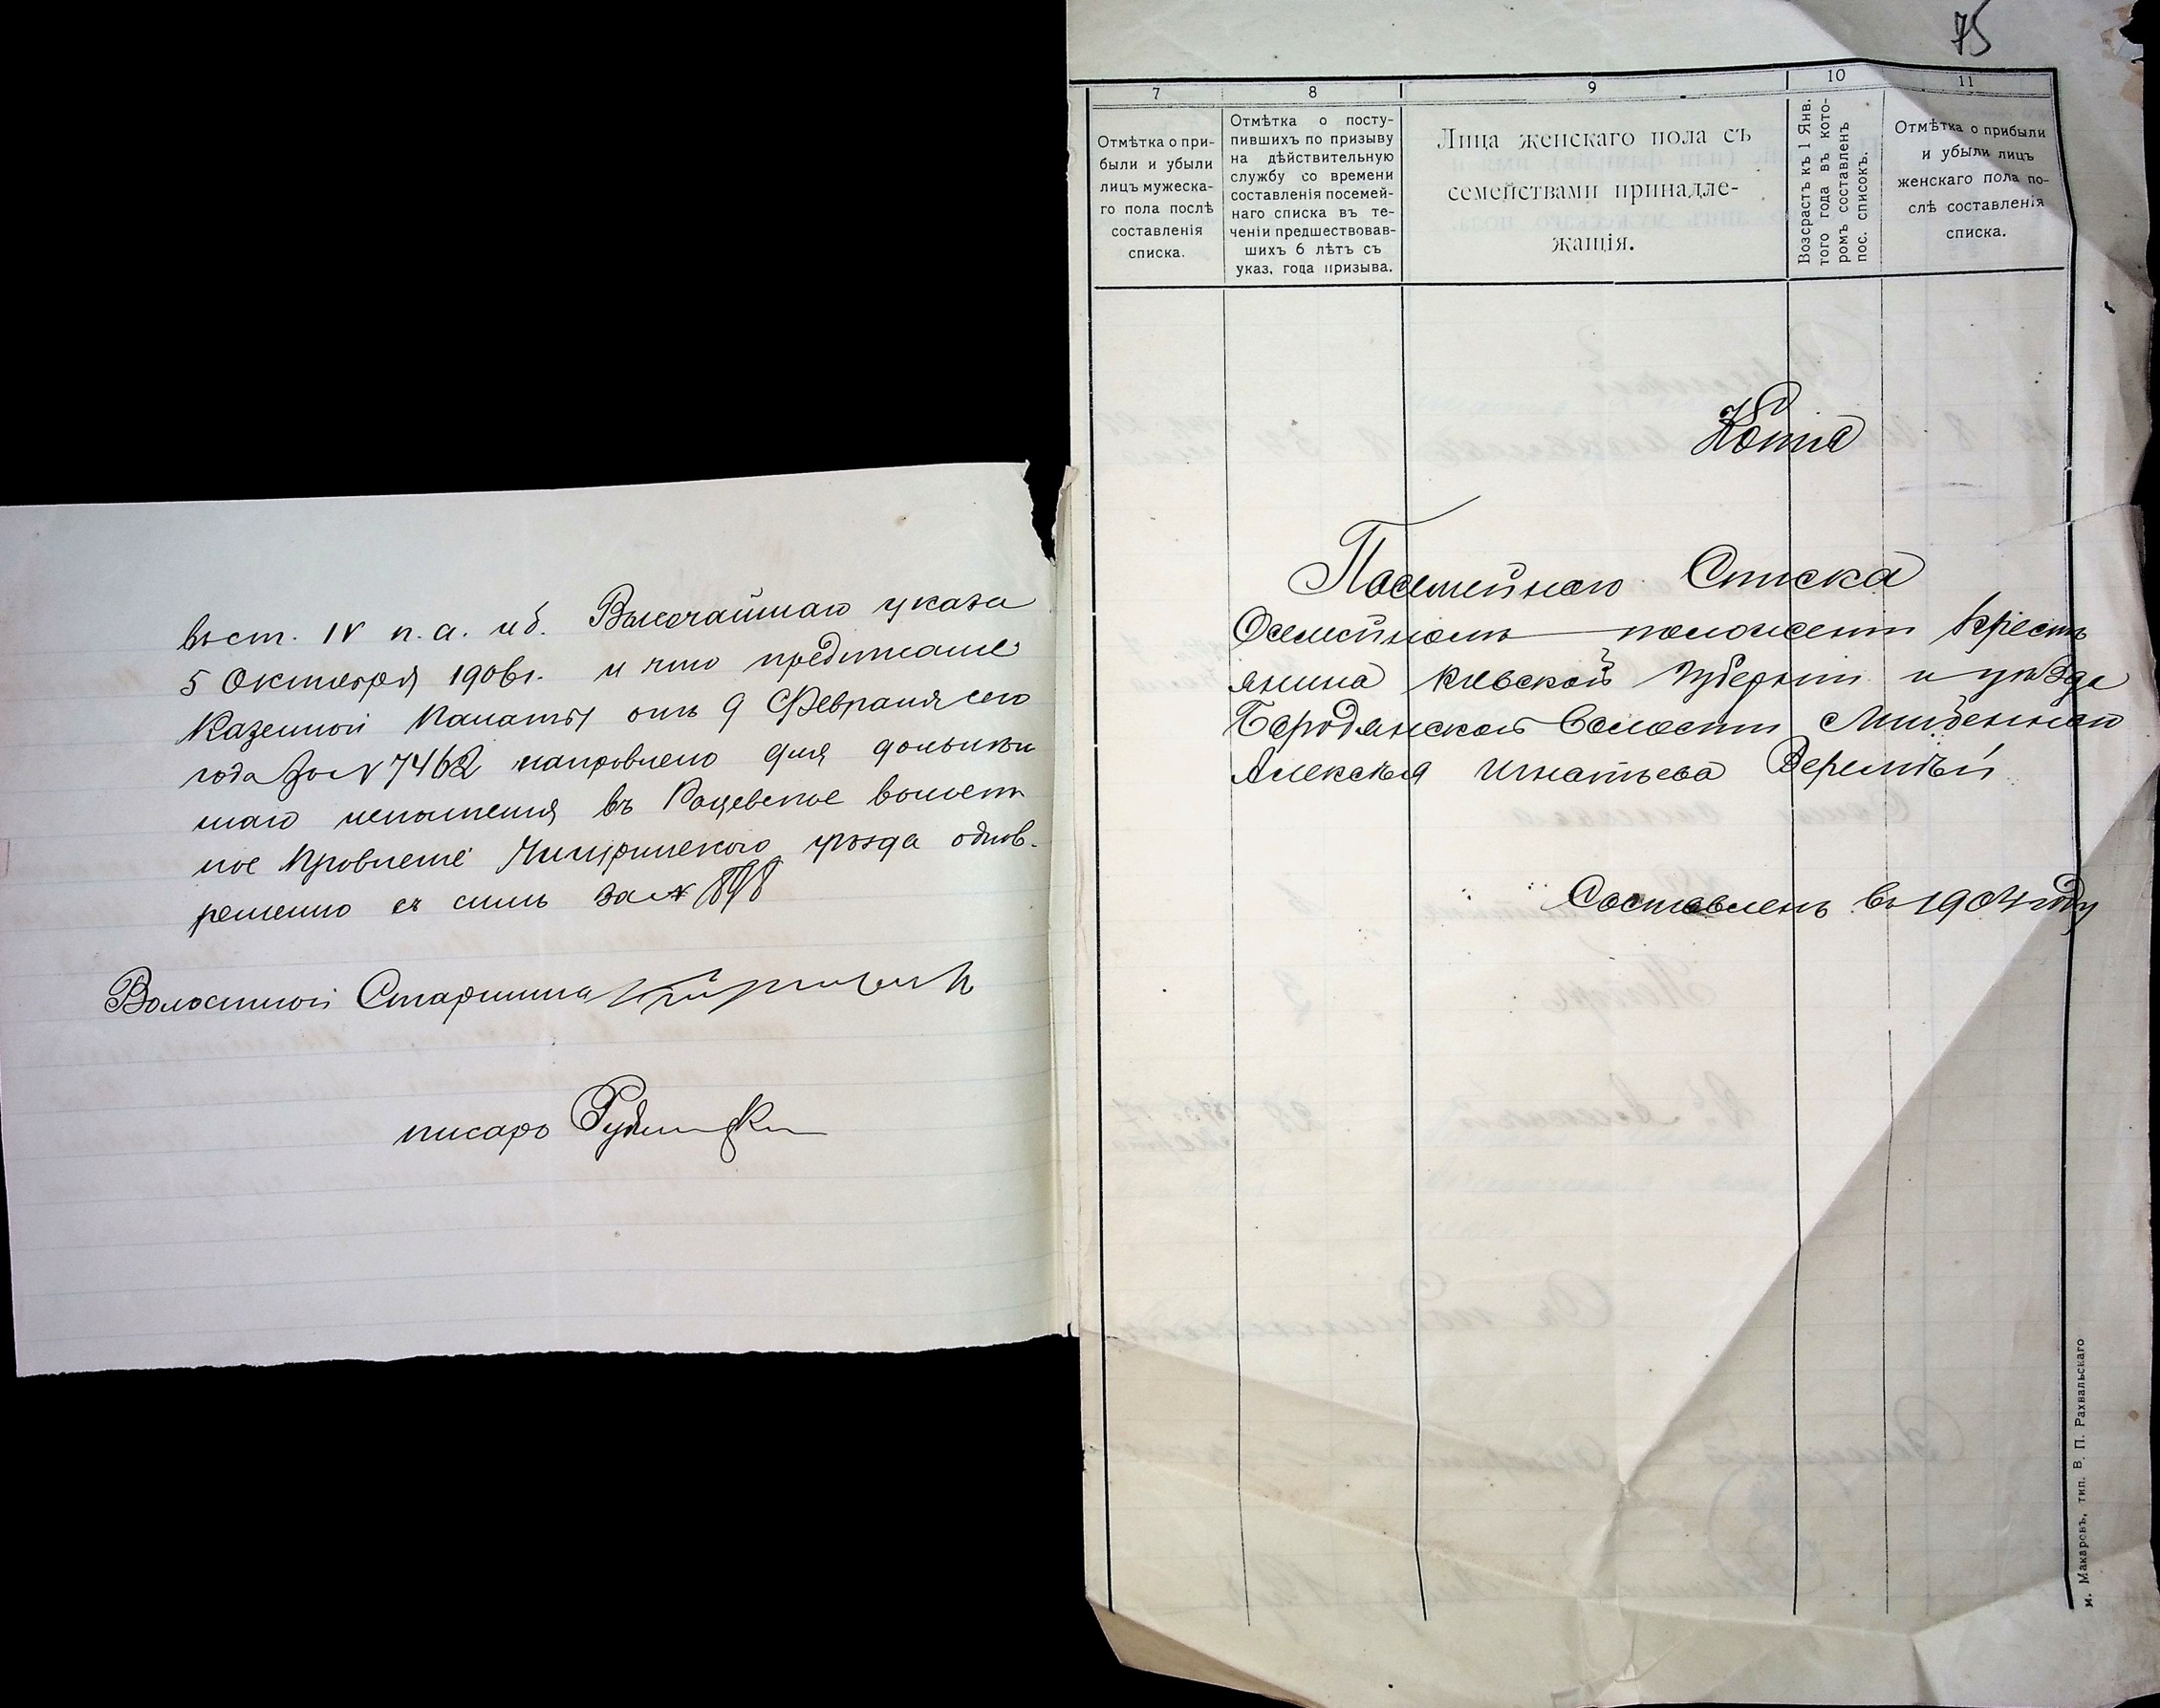 въ ст. IV п. а. и б. Высочайшаго указа
5 Октября 1906 г. и что предписаніе
Казенной Палаты отъ 9 Февраля сего
года за № 7462 направлено для дальнѣй
шаго исполненія въ Рацевское волост
ное Правленіе Чигиринскаго уѣзда однов-
ременно съ симъ за № 898
Волостной Старшина
писарь
75
7
Отмѣтка о при-
были и убыли
лицъ мужеска-
го пола послѣ
составленія
списка.
8
Отмѣтка о посту-
пившихъ по призыву
на дѣйствительную
службу со времени
составленія посемей-
наго списка въ те-
ченіи предшествовав-
шихъ 6 лѣтъ съ
указ. года призыва.
9
Лица женскаго пола съ
семействами принадле-
жащія.
10
Возрастъ къ 1 Янв.
того года въ кото-
ромъ составленъ
пос. списокъ.
11
Отмѣтка о прибыли
и убыли лицъ
женскаго пола по-
слѣ составленія
списка.
Копія
Посемейнаго Списка
О семейномъ положеніи Крест
янина Кіевской Губерніи и уѣзда
Бородянской Волости
Алексѣя Игнатьева Веремѣй
Составленъ въ 1904 году
м. Макаровъ, тип. В. П. Рахвальскаго